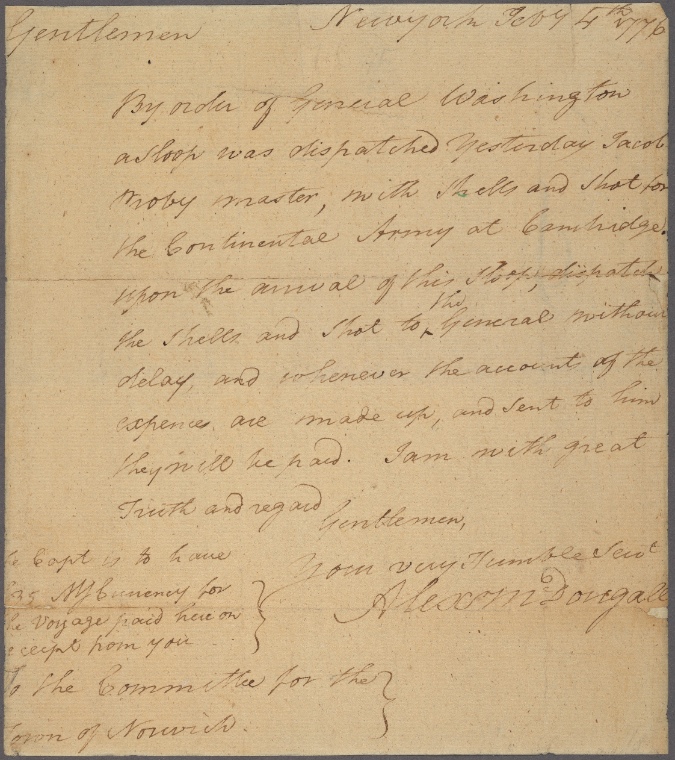 Newyork Feby 4th 1776
Gentlemen
By order of General Washington
a Sloop was dispatched Yesterday Jacob
master, with Shells and Shot for
the Continental Army at Cambridge.
upon the arrival of this Sloop, dispatch
the Shells and Shot to the General without
delay, and whenever the accounts of the
expences are made up, and Sent to him
they will be paid. I am with great
Truth and regard
Gentlemen,
Your very Humble Servt
Alexr McDougall
Capt is to have
Currency for
Voyage paid here on
from you
the Committee for the
Town of Norwich.